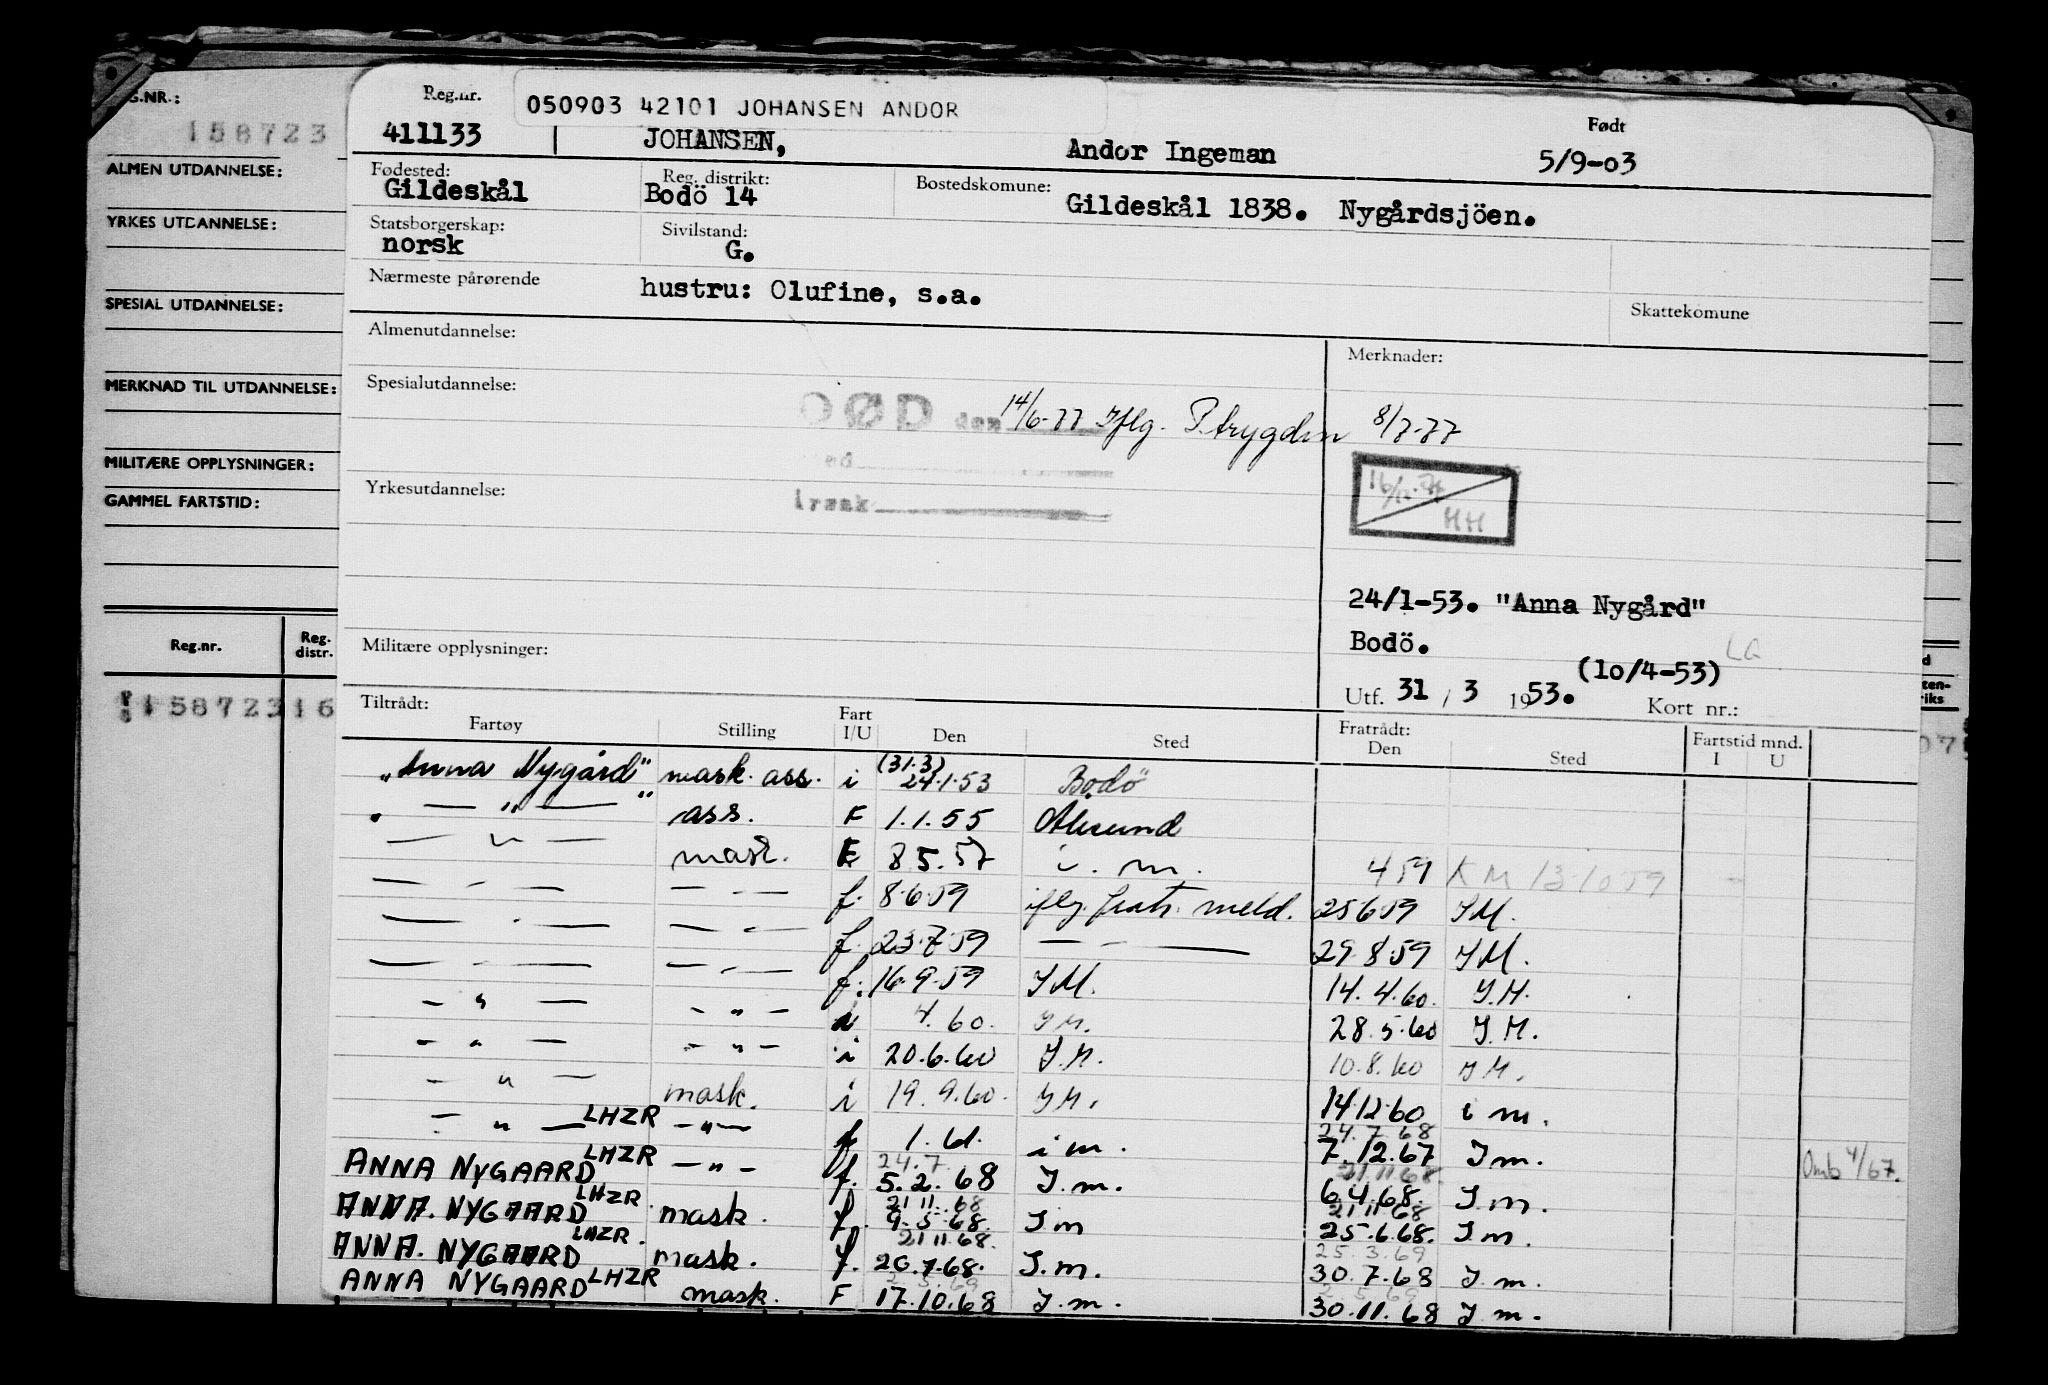 G.NR.:
158723
ALMEN UTDANNELSE:
YRKES UTDANNELSE:
SPESIAL UTDANNELSE:
MERKNAD TIL UTDANNELSE:
MILITÆRE OPPLYSNINGER:
GAMMEL FARTSTID:
Reg.nr. Reg. distr.
15872316
Reg.nr. 050903 42101 JOHANSEN ANDOR Født
411133 JOHANSEN, Andor Ingeman 5/9-03
Fødested: Reg. distrikt: Bostedskomune:
Gildeskål Bodö 14 Gildeskål 1838. Nygårdsjöen.
Statsborgerskap: Sivilstand:
norsk G.
Nærmeste pårørende hustru: Olufine, s.a. Skattekomune
Almenutdannelse: Merknader:
Spesialutdannelse:
DØD den 14/6-77 Iflg. P.trygden 8/7-77
ved
16/12-77
Yrkesutdannelse: årsak HH
24/1-53. "Anna Nygård"
Bodö. LG
Militære opplysninger: (10/4-53)
Utf. 31 / 3 1953. Kort nr.:
Tiltrådt: Fratrådt: Fartstid mnd.
Fartøy Stilling Fart I/U Den Sted Den Sted I U
(31.3)
"Anna Nygård" mask. ass. i 24.1.53 Bodö
— " — " ass. F 1.1.55 Ålesund
— " — mask. F 8 5. 57 i. m. 4 59 KM 13.10 59
— - — — - — f. 8.6.59 iflg. fratr. meld. 25 6 59 I.M.
— - — — - — f. 23.7.59 — - — 29.8.59 I.M.
— - — — - — f. 16.9.59 I.M. 14.4.60. I.M.
- " — - " - 4.60. I.M. 28.5.60 I.M.
- " — - " - i 20.6.60 I.M. 10.8.60 I.M.
- " — mask. i 19.9.60. I.M. 14.12.60 i m.
24.7.68
— " — LHZR - " - f 1.61. i m. 7.12.67 I m. Omb 4/67.
24.7. 21 11 68.
ANNA NYGAARD LHZR — " - f. 5.2.68 I.m. 6.4.68. I.m.
21 11.68 21 11 68
ANNA. NYGAARD LHZR. mask. f. 9.5.68. I m 25.6.68. I.m.
21 11.68. 25.3.69
ANNA. NYGAARD LHZR. mask. f. 20.7.68. I.m. 30.7.68 I.m.
2.5.69 2.5.69
ANNA NYGAARD LHZR mask. F 17.10.68 I.m. 30.11.68 I.m.